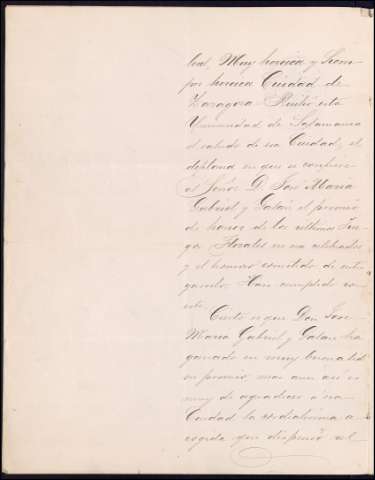 leal, Muy heroica y Siem-
pre heroica Ciudad de
Zaragoza. Recibió esta
Universidad de Salamanca
el saludo de esa Ciudad, y el
diploma en que se confiere
al Señor D. José María
Gabriel y Galán el premio
de honor de los últimos Jue-
gos Florales en esa celebrados
y el honroso cometido de entre-
garselo. Hase cumplido con
esto.
Cierto es que Don José
María Gabriel y Galan ha
ganado en muy buena lid
su premio mas aun así es
muy de agradecer á esa
Ciudad la cordialísima a-
cogida que dispensó al